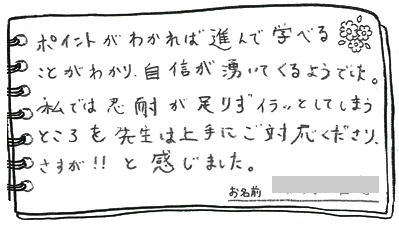 ポイントがわかれば進んで学べる
ことがわかり、自信が湧いてくるようでした。
私では忍耐が足りずイラッとしてしまう
ところを先生は上手にご対応くださり、
さすが!!と感じました。
お名前